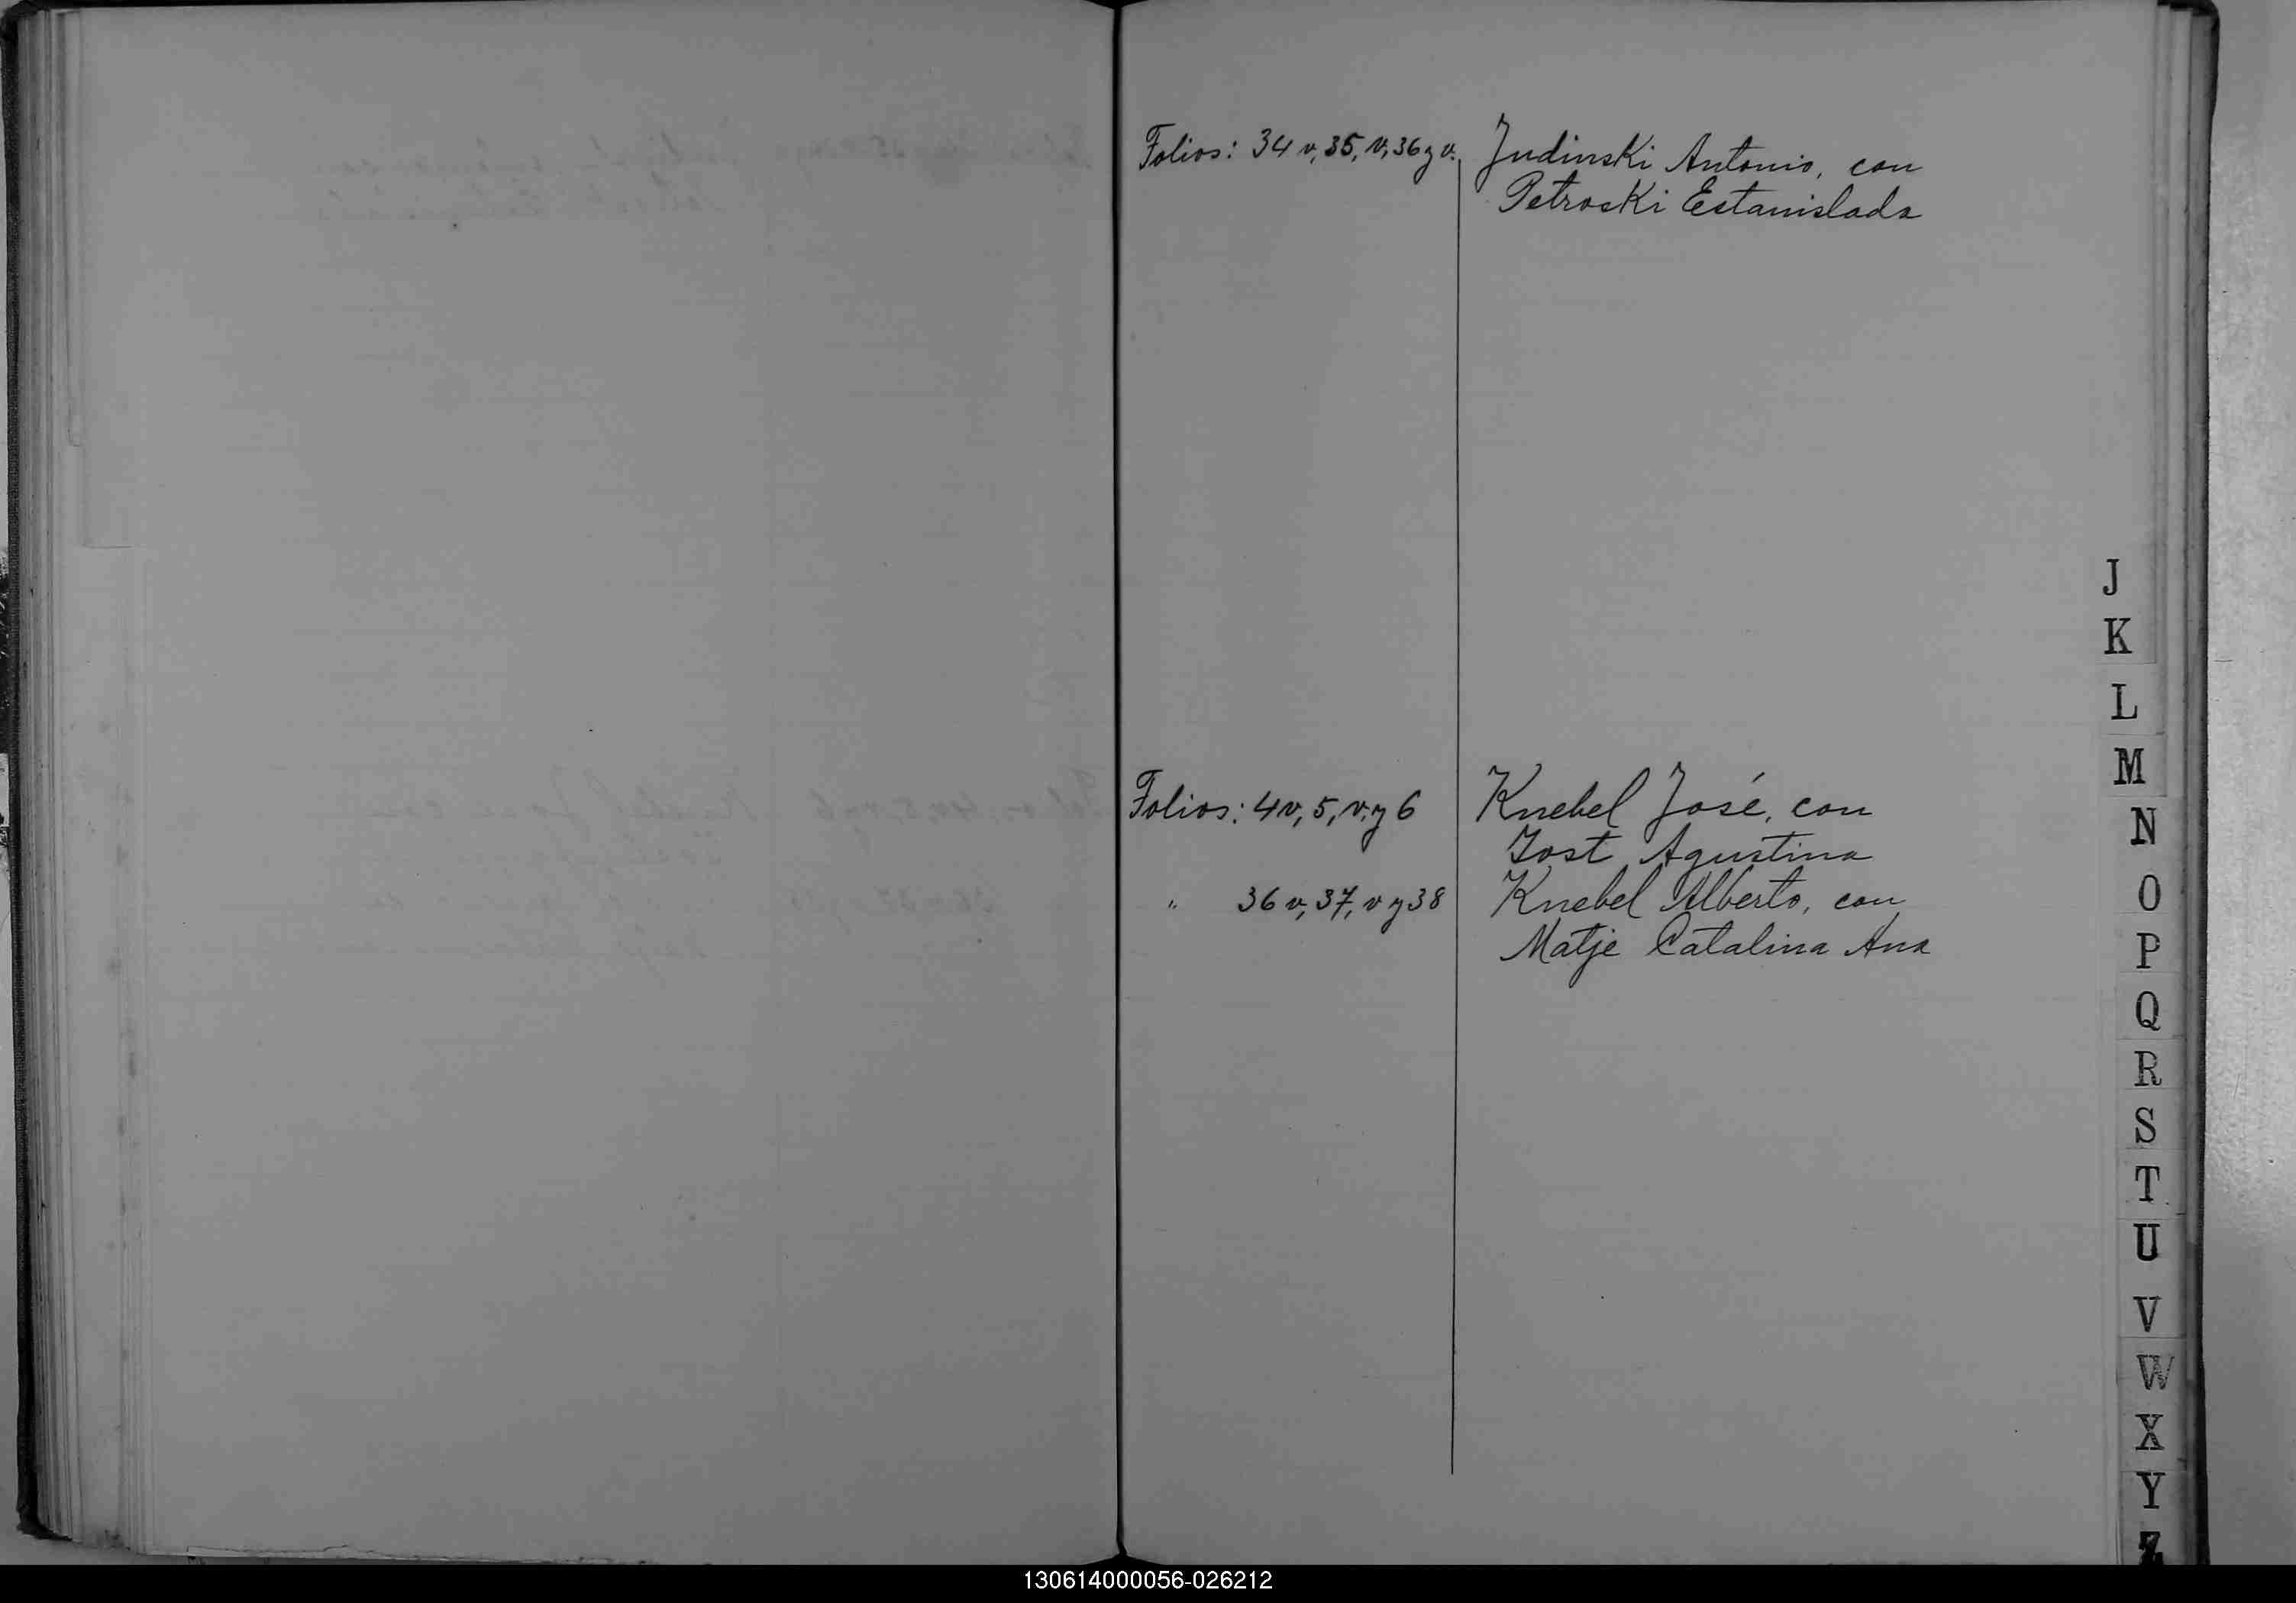 Folios: 34 v, 35, v, 36 y v. Judinski Antonio, con
Petroski Estanislada
Folios: 4v, 5, v. y 6 Knebel José, con
Jost Agustina
" 36 v, 37, v y 38 Knebel Alberto, con
Matje Catalina Ana
J
K
L
M
N
O
P
Q
R
S
T
U
V
W
X
Y
Z
130614000056-026212